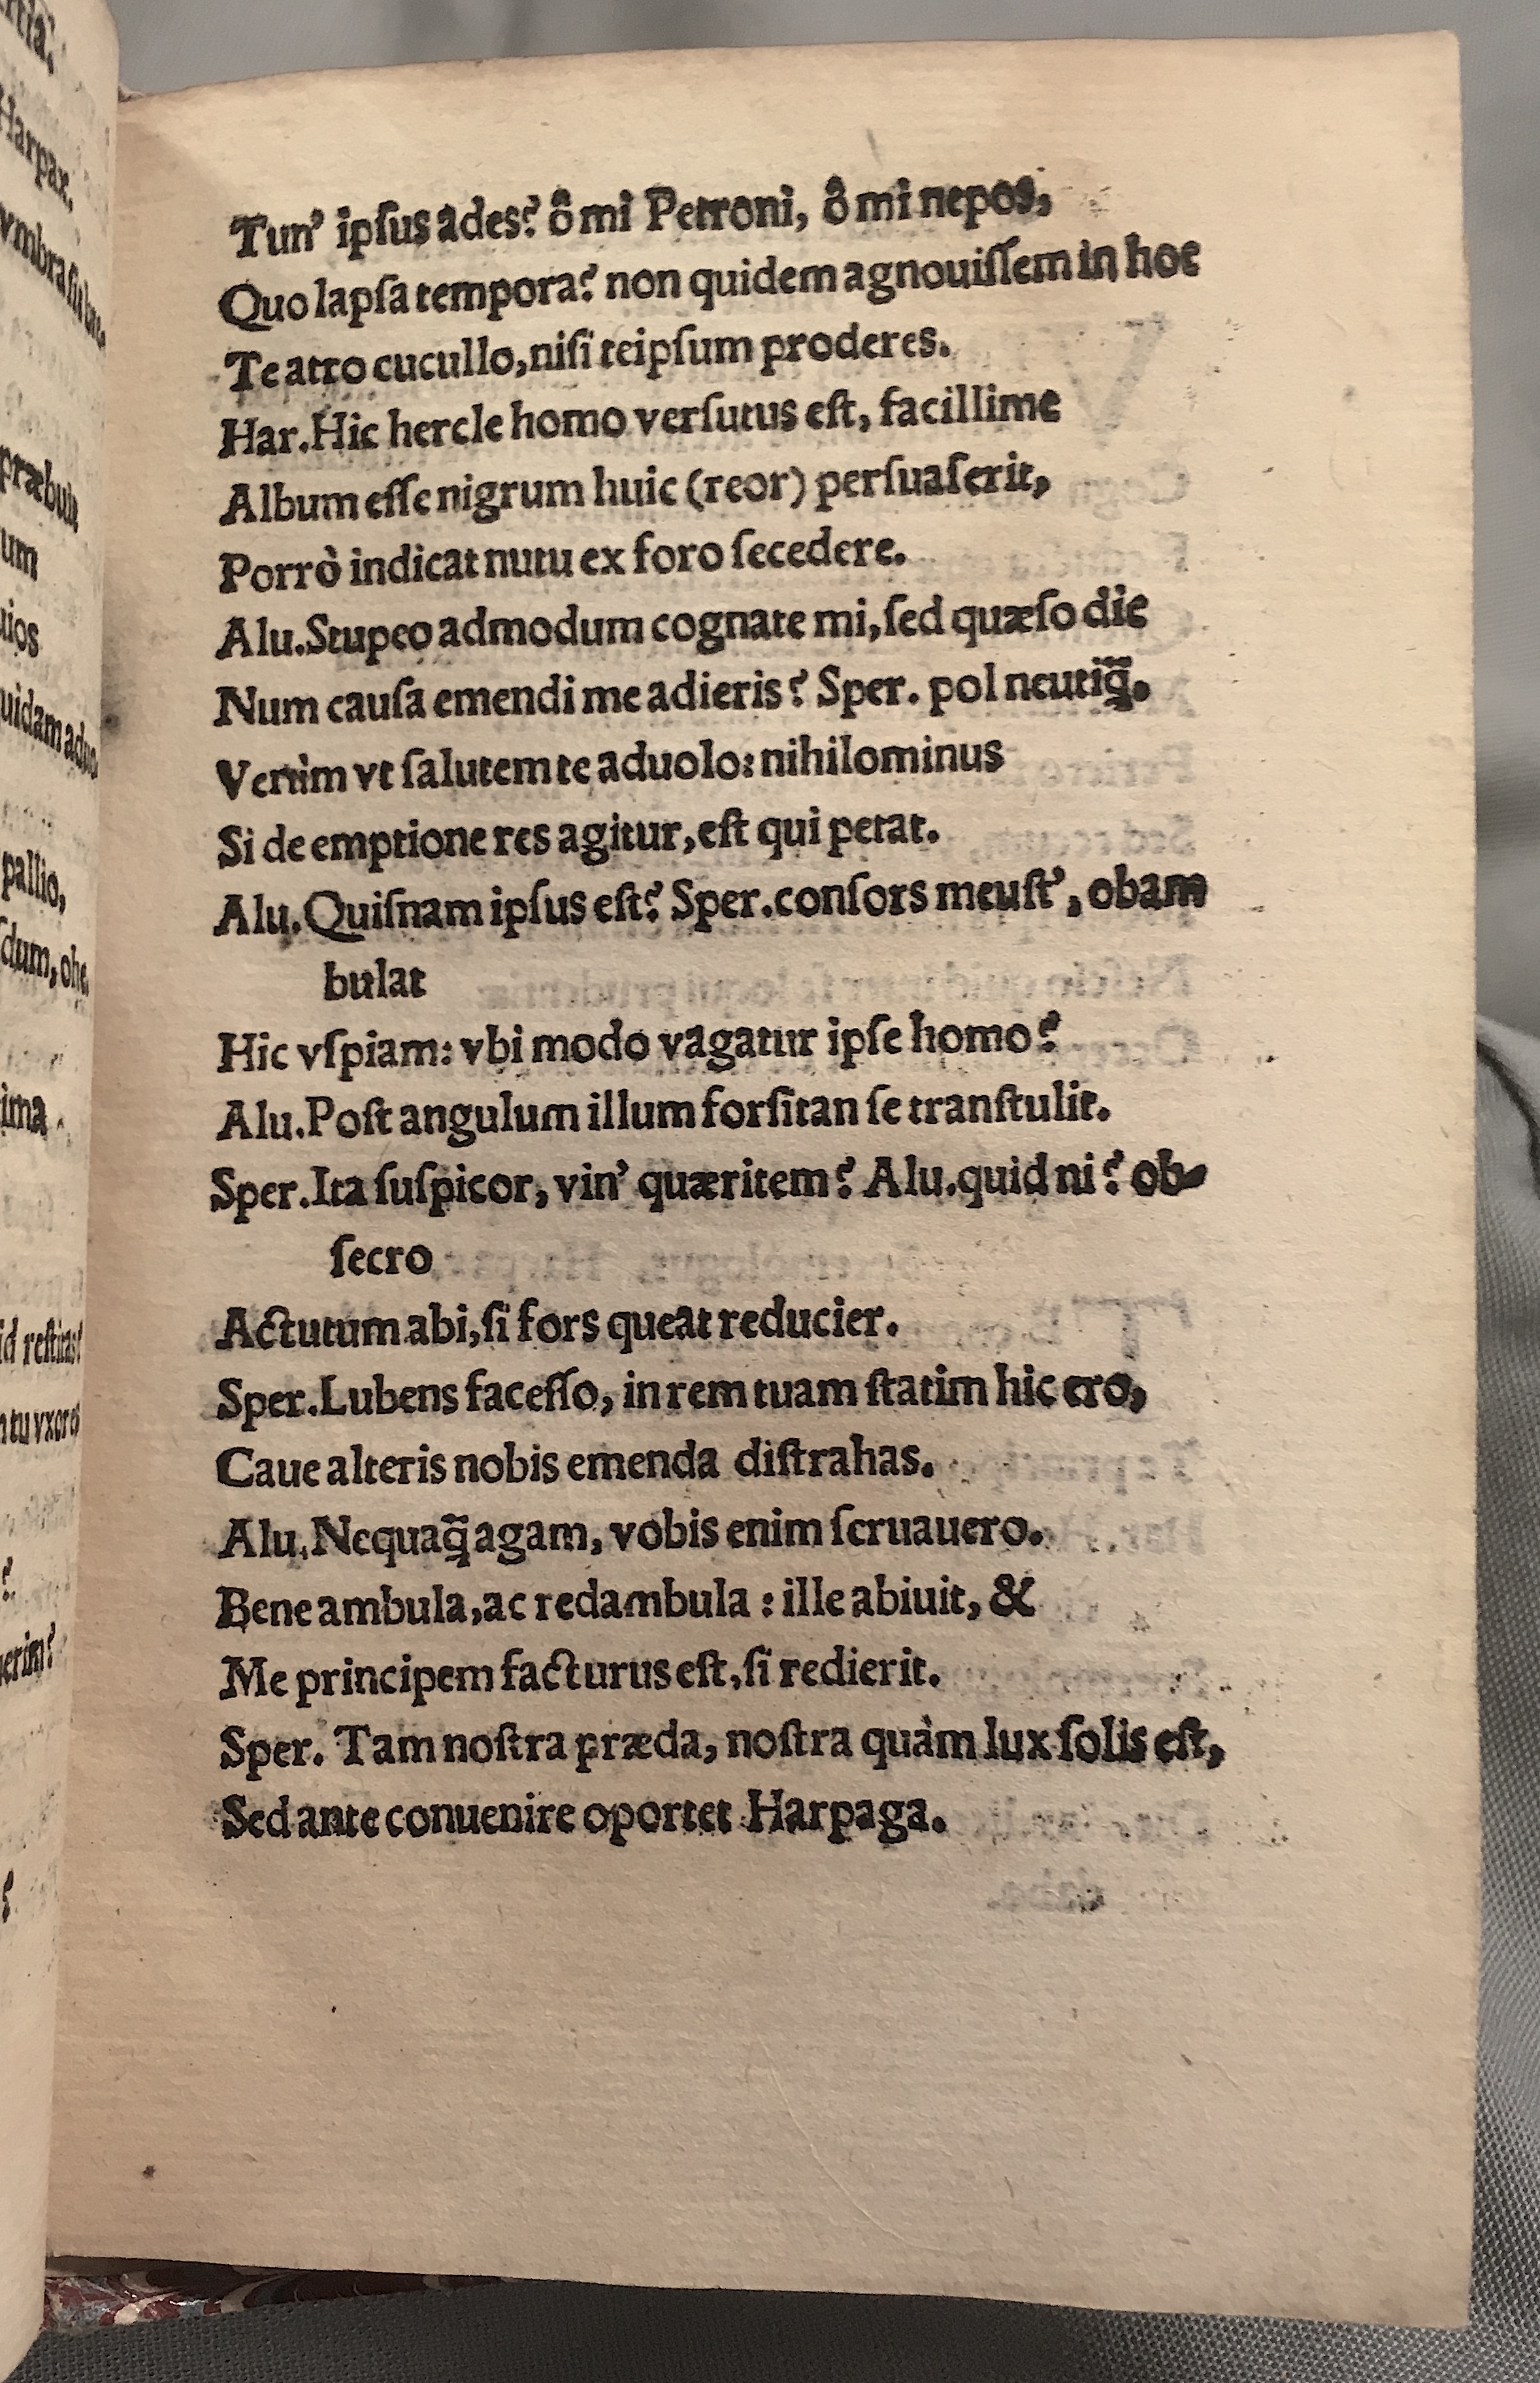 Tun' ipſus ades? ô mi Petroni, ô mi nepos,
Quo lapſa tempora? non quidem agnouiſſem in hoc
Te atro cucullo, niſi teipſum proderes.
Har. Hic hercle homo verſutus eſt, facillime
Album eſſe nigrum huic (reor) perſuaſerit,
Porrò indicat nutu ex foro ſecedere.
Alu. Stupeo admodum cognate mi, ſed quæſo dic
Num cauſa emendi me adieris? Sper. pol neutiq̃.
Verùm vt ſalutem te aduolo: nihilominus
Si de emptione res agitur, eſt qui petat.
Alu. Quiſnam ipſus eſt? Sper. conſors meuſt', obam
bulat
Hic vſpiam: vbi modo vagatur ipſe homo?
Alu. Poſt angulum illum forſitan ſe tranſtulit.
Sper. Ita ſuſpicor, vin' quæritem? Alu. quid ni? ob-
ſecro
Actutum abi, ſi fors queat reducier.
Sper. Lubens faceſſo, in rem tuam ſtatim hic ero,
Caue alteris nobis emenda diſtrahas.
Alu. Nequaq̃ agam, vobis enim ſeruauero.
Bene ambula, ac redambula: ille abiuit, &
Me principem facturus eſt, ſi redierit.
Sper. Tam noſtra præda, noſtra quàm lux ſolis eſt,
Sed ante conuenire oportet Harpaga.
Harpax.
præbuit
um
pallio,